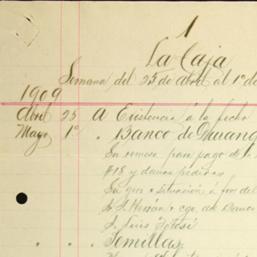 1
La Caja
Semana del 25 de Abril al 1º de
1909
Abril 25 A Existencia á la fecha
Mayo 1º " Banco de Durang
Su remesa para pago de la
#18 y demas pedidos
En giro s/ situación á fav. del
J. Luis Potosí
" " " Semillas